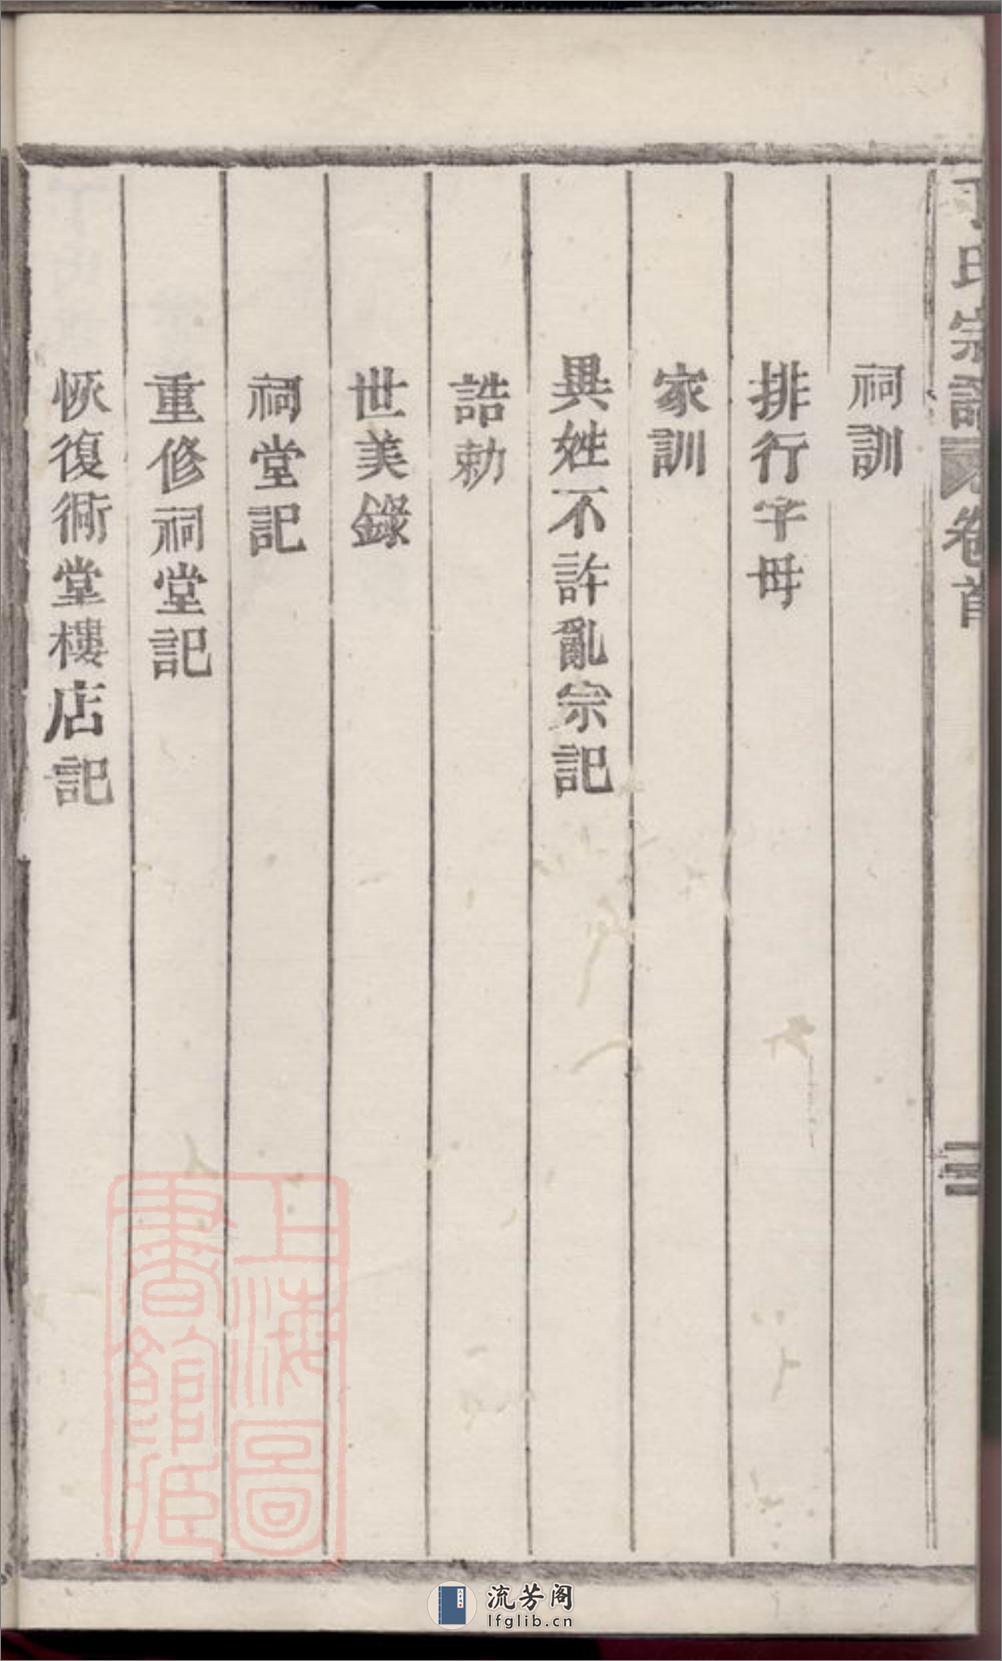 丁氏宗譜
卷首
二
祠訓
排行字母
家訓
異姓不許亂宗記
誥勅
世美錄
祠堂記
重修祠堂記
恢復衕堂樓店記
上海圖書館藏
流芳阁
lfglib.cn